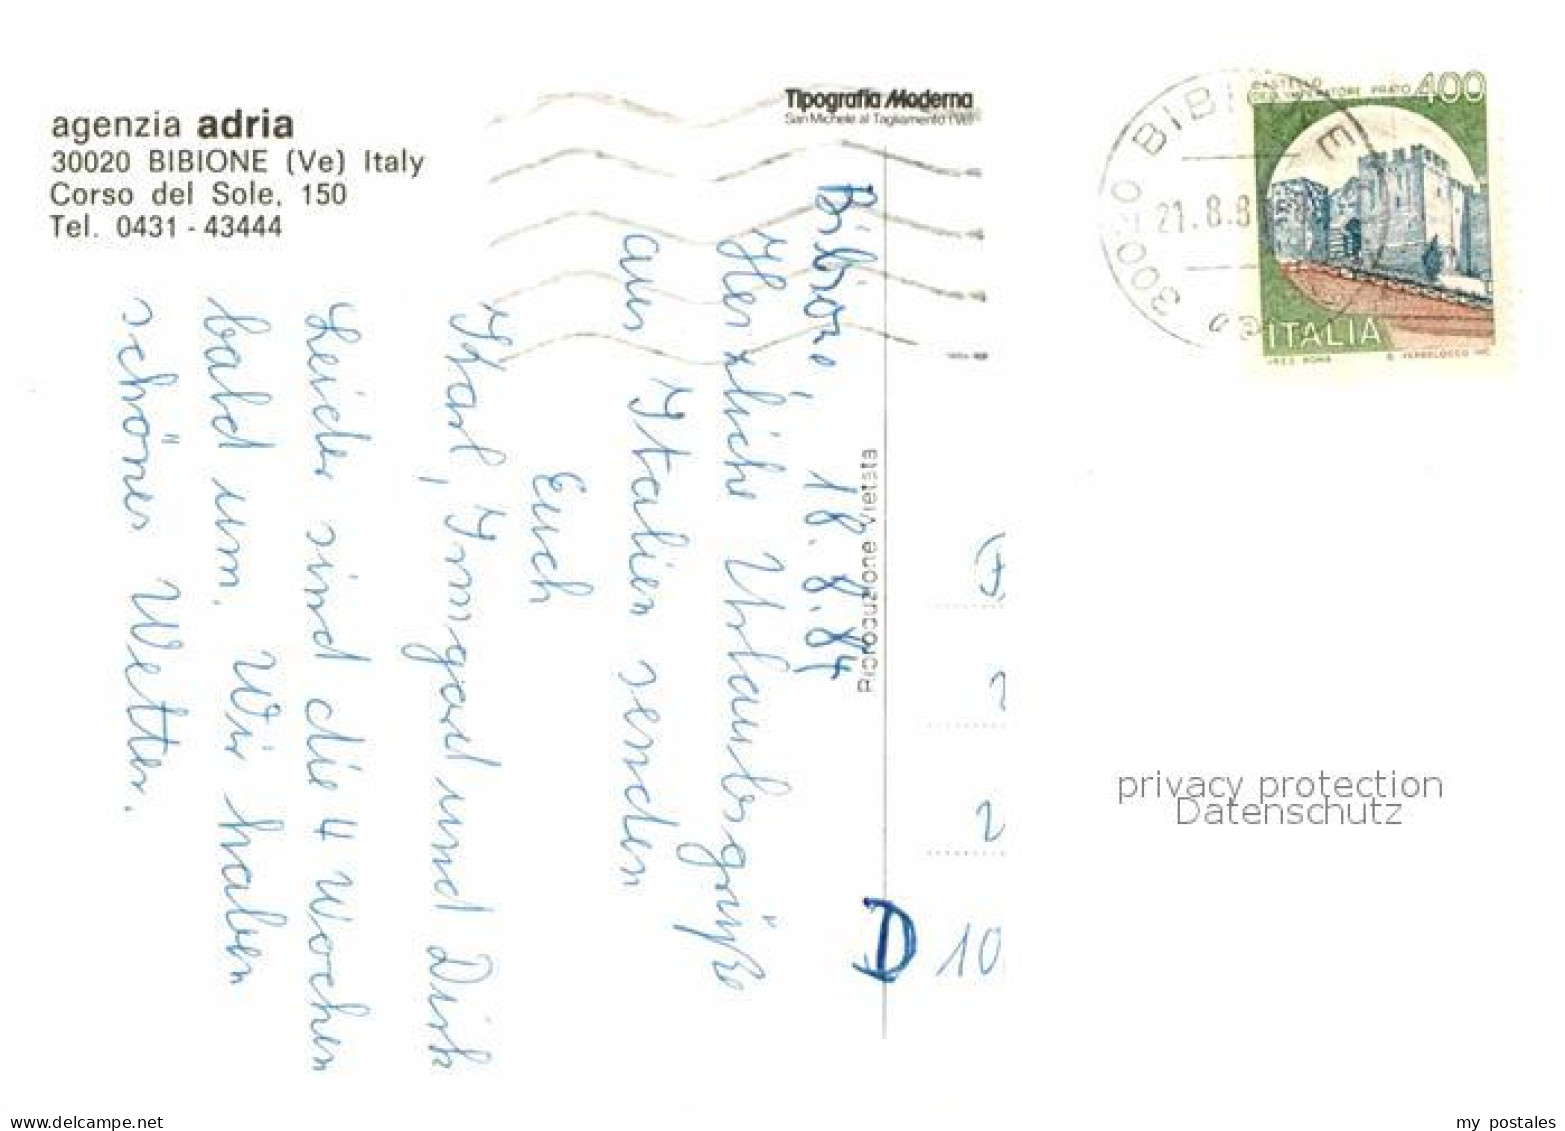 agenzia adria
30020 BIBIONE (Ve) Italy
Corso del Sole, 150
Tel. 0431 - 43444
Tipografia Moderna
San Michele al Tagliamento (Ve)
Riproduzione vietata
Bibione, 18.8.84
Herzliche Urlaubsgrüße
aus Italien senden
Euch
Karl, Irmgard und Dirk
Leider sind die 4 Wochen
bald um. Wir haben
schönes Wetter.
D 10
2
30020 BIBIONE
21.8.8
400
ITALIA
privacy protection
Datenschutz
my postales